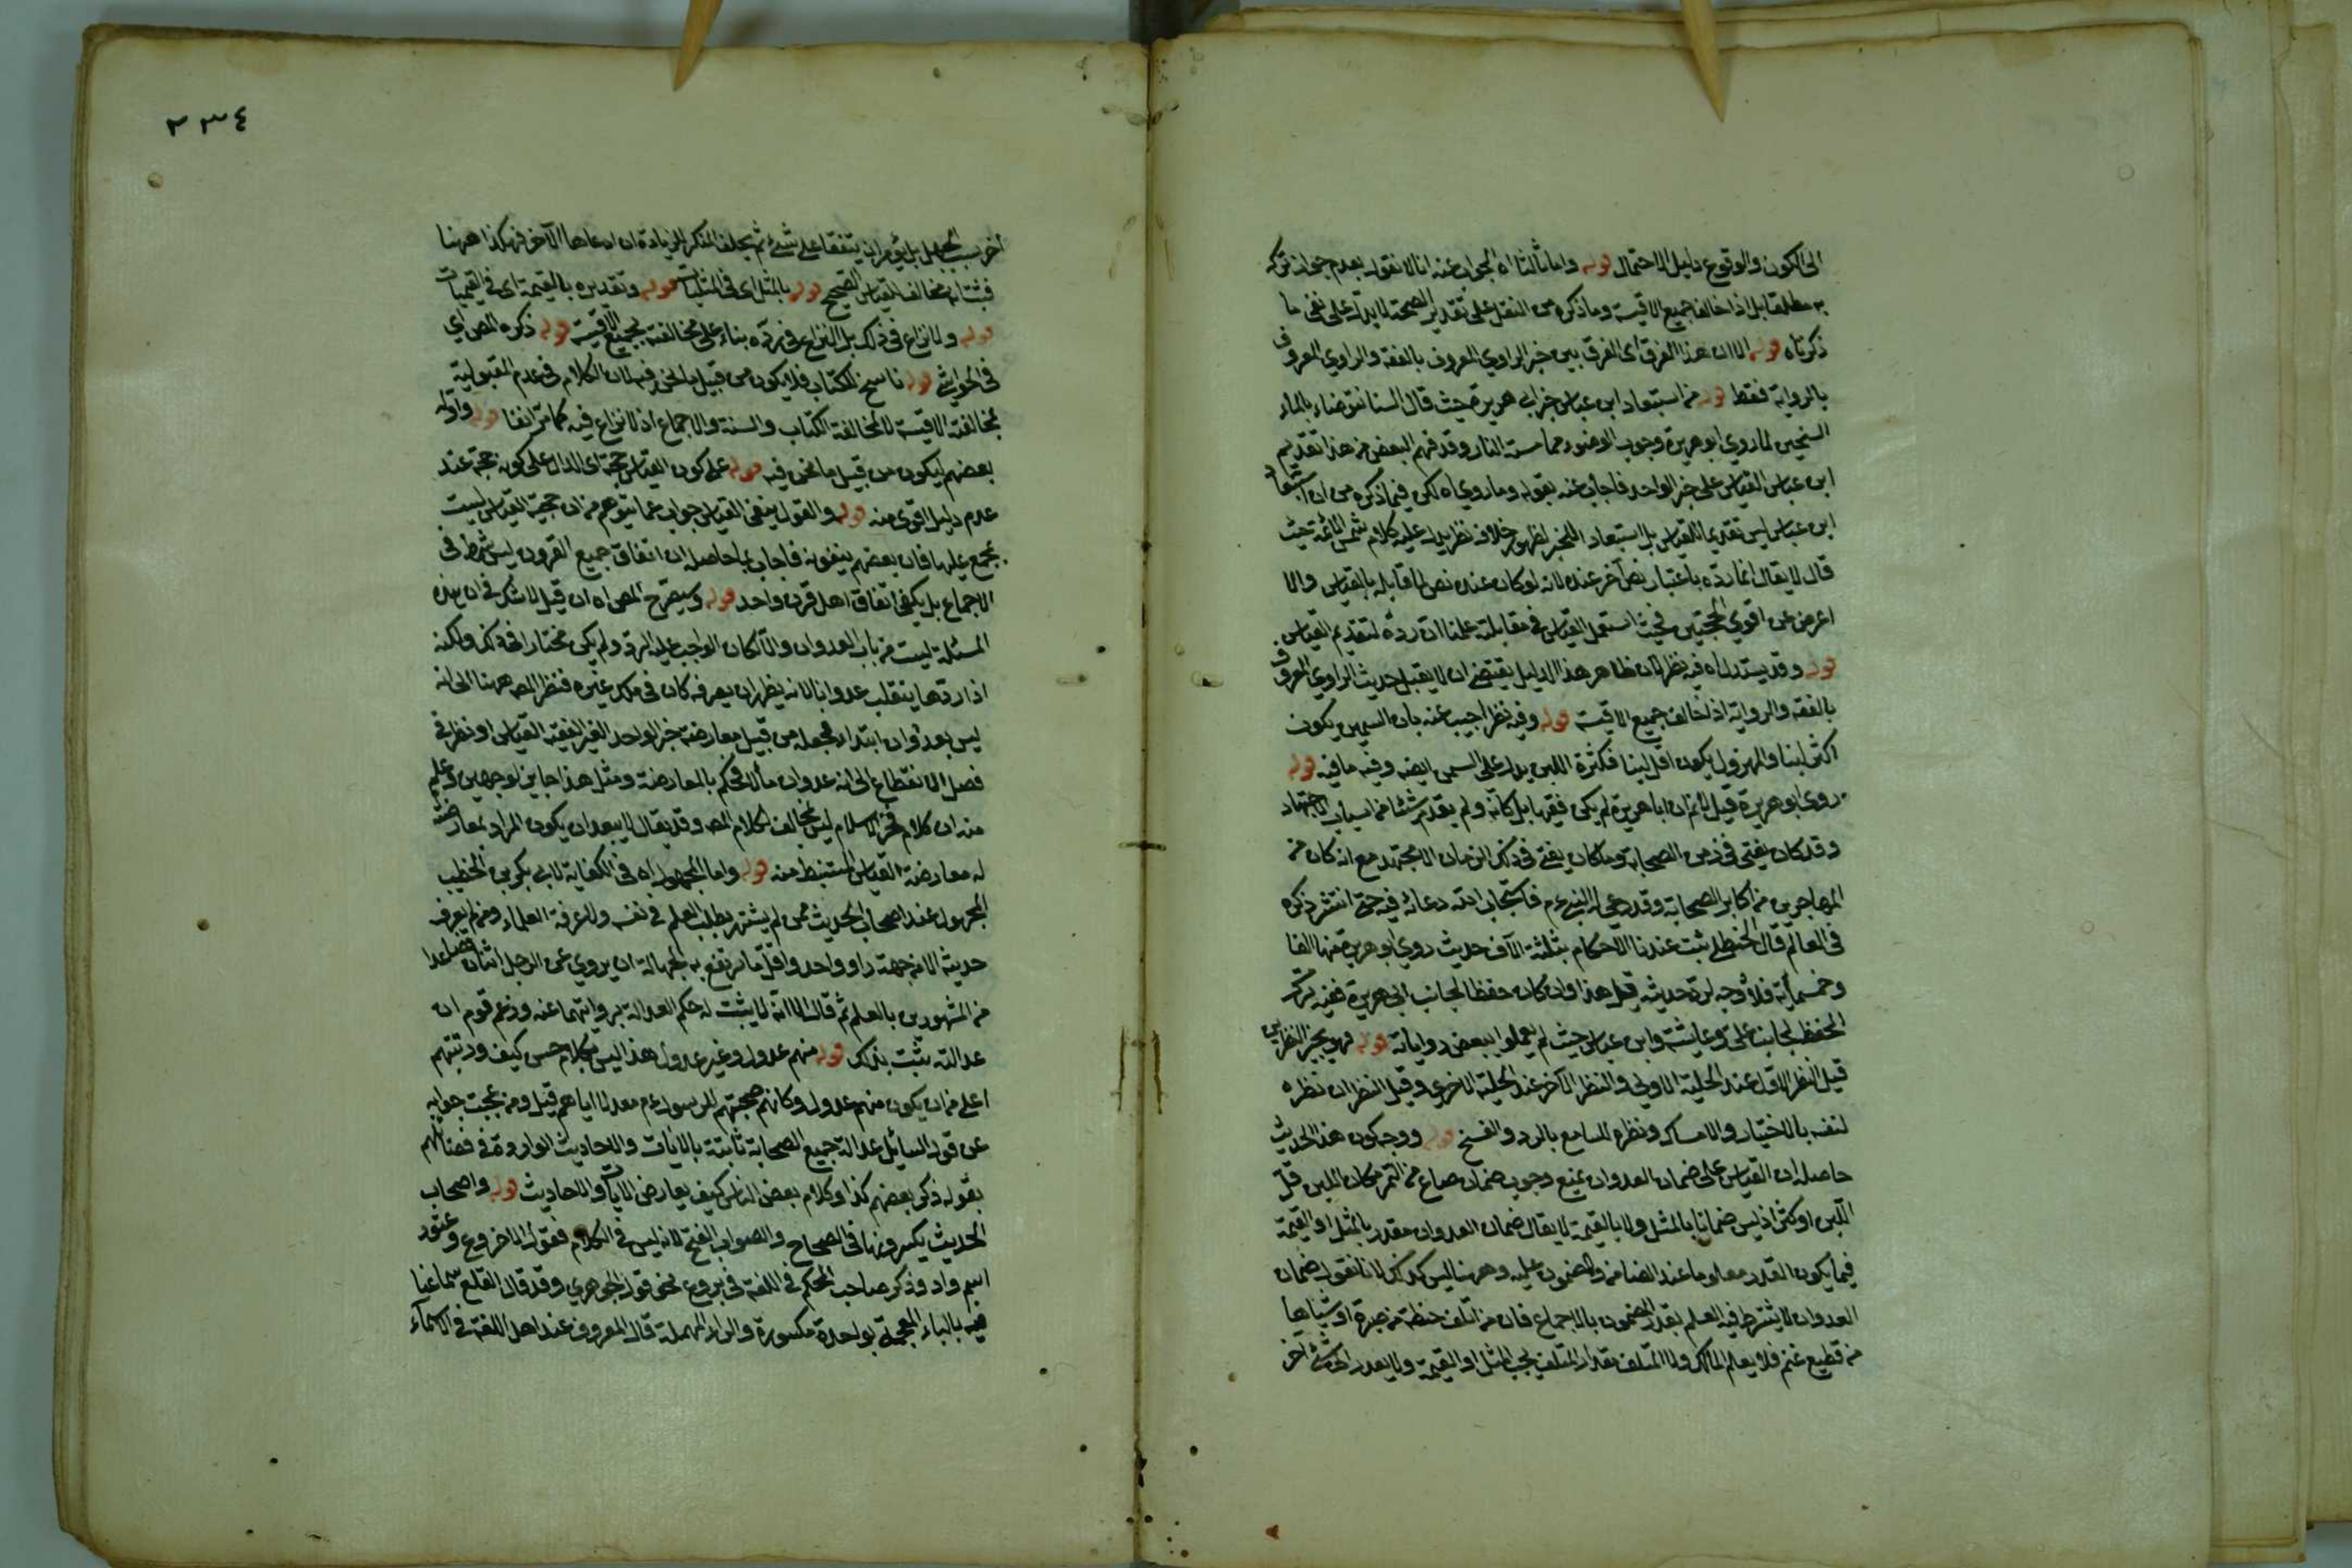 الى الكون والوقوع دليل الاحتمال قوله واما ثالثا اه الجواب عنه انا لا نقول بعدم جواز تركه
به مطلقا بل اذا خالف جميع الاقيسة وما ذكره من النقل على تقدير الصحة لا يدل على نفى ما
ذكرناه قوله الا ان هذا الفرق اى الفرق بين خبر الراوي المعروف بالفقه والراوي المعروف
بالرواية فقط قوله من استبعاد ابن عباس خبر ابى هريرة حيث قال السنا نتوضاء بالماء
السخين لما روي ابو هريرة وجوب الوضوء مما مسته النار وقد فهم البعض من هذا تقديم
ابن عباس القياس على خبر الواحد فاجاب عنه بقوله وما روي اه لكن فيما ذكره من ان استبعاد
ابن عباس ليس تقديما للقياس بل استبعاد للخبر لظهور خلافه نظر يدل عليه كلام شمس الائمة حيث
قال لا يقال انما رده باعتبار نص آخر عنده لانه لو كان عنده نص لما قابله بالقياس والا
اعرض عن اقوي الحجتين فحيث استعمل القياس في مقابلته علمنا ان رده لتقديم القياس
قوله وقد يستدل اه فيه نظر لان ظاهر هذا الدليل يقتضى ان لا يقبل حديث الراوي المعروف
بالفقه والرواية اذا خالف جميع الاقيسة قوله وفيه نظر اجيب عنه بان السمين يكون
اكثر لبنا والمهزول يكون اقل لبنا فكثرة اللبن يدل على السمن ايضه وفيه ما فيه قوله
روى ابو هريرة قيل لا نم ان ابا هريرة لم يكن فقيها بل كان ولم يعدم شئا من اسباب الاجتهاد
وقد كان يفتى في زمن الصحابة وما كان يفتى في ذلك الزمان الا مجتهد مع انه كان من
المهاجرين من اكابر الصحابة وقد دعى له النبى عم فاستجاب الله دعائه فيه حتى انتشر ذكره
فى العالم قال الحنظلى ثبت عندنا الاحكام بثلثة الآف حديث روي ابو هريرة منها الفا
وخمسمأية فلا وجه لرد حديثه قيل هذا وان كان حفظا لجانب ابى هريرة ففيه ترك
الحفظ لجانب على وعايشة وابن عباس حيث لم يعملوا ببعض رواياته قوله فهو بخير النظرين
قيل النظر الاول عند الحلبة الاولى والنظر الآخر عند الحلبة الاخرى وقيل النظران نظره
لنفسه بالاختيار والامساك ونظره للبايع بالرد والفسخ قوله ووجه كون هذا الحديث
حاصله ان القياس على ضمان العدوان يمنع وجوب ضمان صاع من التمر مكان اللبن قل
اللبن او كثر اذ ليس ضمانا بالمثل ولا بالقيمة لا يقال ضمان العدوان مقدر بالمثل او القيمة
فيما يكون القدر معلوما عند الضامن والمضمون عليه وههنا ليس كذلك لانا نقول ضمان
العدوان لا يشترط فيه العلم بقدر المضمون بالاجماع فان من اتلف حنطة من صبرة او شياها
من قطيع غنم فلا يعلم المالك ولا المتلف مقدار المتلف يجب المثل او القيمة ولا يعدل الى شئ آخر
٢٣٤
آخر بسبب الجهل بل يؤمر ان يتفقا على شئ ثم يحلف المنكر للزيادة ان ادعاها الآخر فهكذا ههنا
فثبت انه مخالف للقياس الصحيح قوله بالمثل اى فى المثليات قوله وتقديره بالقيمة اى في القيميات
قوله ولا نزاع فى ذلك بل النزاع فى رده بناء على مخالفته لجميع الاقيسة قوله ذكره المص اي
فى الحواشى قوله ناسخ للكتاب فلا يكون من قبيل ما نحن فيه لان الكلام فى عدم المقبولية
بمخالفة الاقيسة لا لمخالفة الكتاب والسنة والاجماع اذ لا نزاع فيه كما مر آنفا قوله واوله
بعضهم ليكون من قبيل ما نحن فيه قوله على كون القياس حجة اى الدال على كونه حجة عند
عدم دليل اقوى منه قوله والقول بنفى القياس جواب عما يتوهم من ان حجية القياس ليست
بمجمع عليها فان بعضهم ينفونه فاجاب بما حاصله ان اتفاق جميع القرون ليس بشرط فى
الاجماع بل يكفى اتفاق اهل قرن واحد قوله وسيصرح المص اه ان قيل لا شك فى ان هذه
المسئلة ليست من باب العدوان والا لكان الواجب عليه الرد ولم يكن مختارا فى ذلك ولكنه
اذا ردها ينقلب عدوانا لانه يظهر ان يعرفه كان فى ملك غيره فنظر المص ههنا الى انه
ليس بعدوان ابتداء فجعله من قبيل معارضة خبر الواحد الغير الفقيه القياس او نظر فى
فصل الانقطاع الى انه عدوان مآلا فحكم بالمعارضة ومثل هذا جايز لوجهين وعلم
منه ان كلام فخر الاسلام ليس بمخالف لكلام المص وقد يقال لا يبعد ان يكون المراد بمعارضته
له معارضة القياس المستنبط منه قوله واما المجهول اه فى الكفاية لابى بكر بن الخطيب
المجهول عند اصحاب الحديث من لم يشتهر بطلب العلم فى نفسه ولا عرفه العلماء ومن لم يعرف
حديثه الا من جهة راو واحد واقل ما يرتفع به الجهالة ان يروي عن الرجل اثنان فصاعدا
من المشهورين بالعلم ثم قال الا انه لا يثبت له حكم العدالة بروايتهما عنه وزعم قوم ان
عدالته يثبت بذلك قوله منهم عدول وغير عدول هذا ليس بكلام حسن كيف ورتبتهم
اعلى من ان يكون منهم عدول وكانهم صحبتهم للرسول عم معدلا اياهم قيل ومن عجيب جوابه
عن قول السائل عدالة جميع الصحابة ثابتة بالايات والاحاديث الواردة فى فضائلهم
بقوله ذكر بعضهم كذا وكلام بعض الناس كيف يعارض الايات والاحاديث قوله واصحاب
الحديث يكسرونها فى الصحاح والصواب الفتح لانه ليس فى الكلام فعول الا خروع وعتود
اسم واد وذكر صاحب المحكم فى اللغة فى بروع نحو قول الجوهري وقد قال القلعى سماعنا
فيه بالباء المعجمة بواحدة مكسورة والراء المهملة قال المعروف عند اهل اللغة فى الاسماء